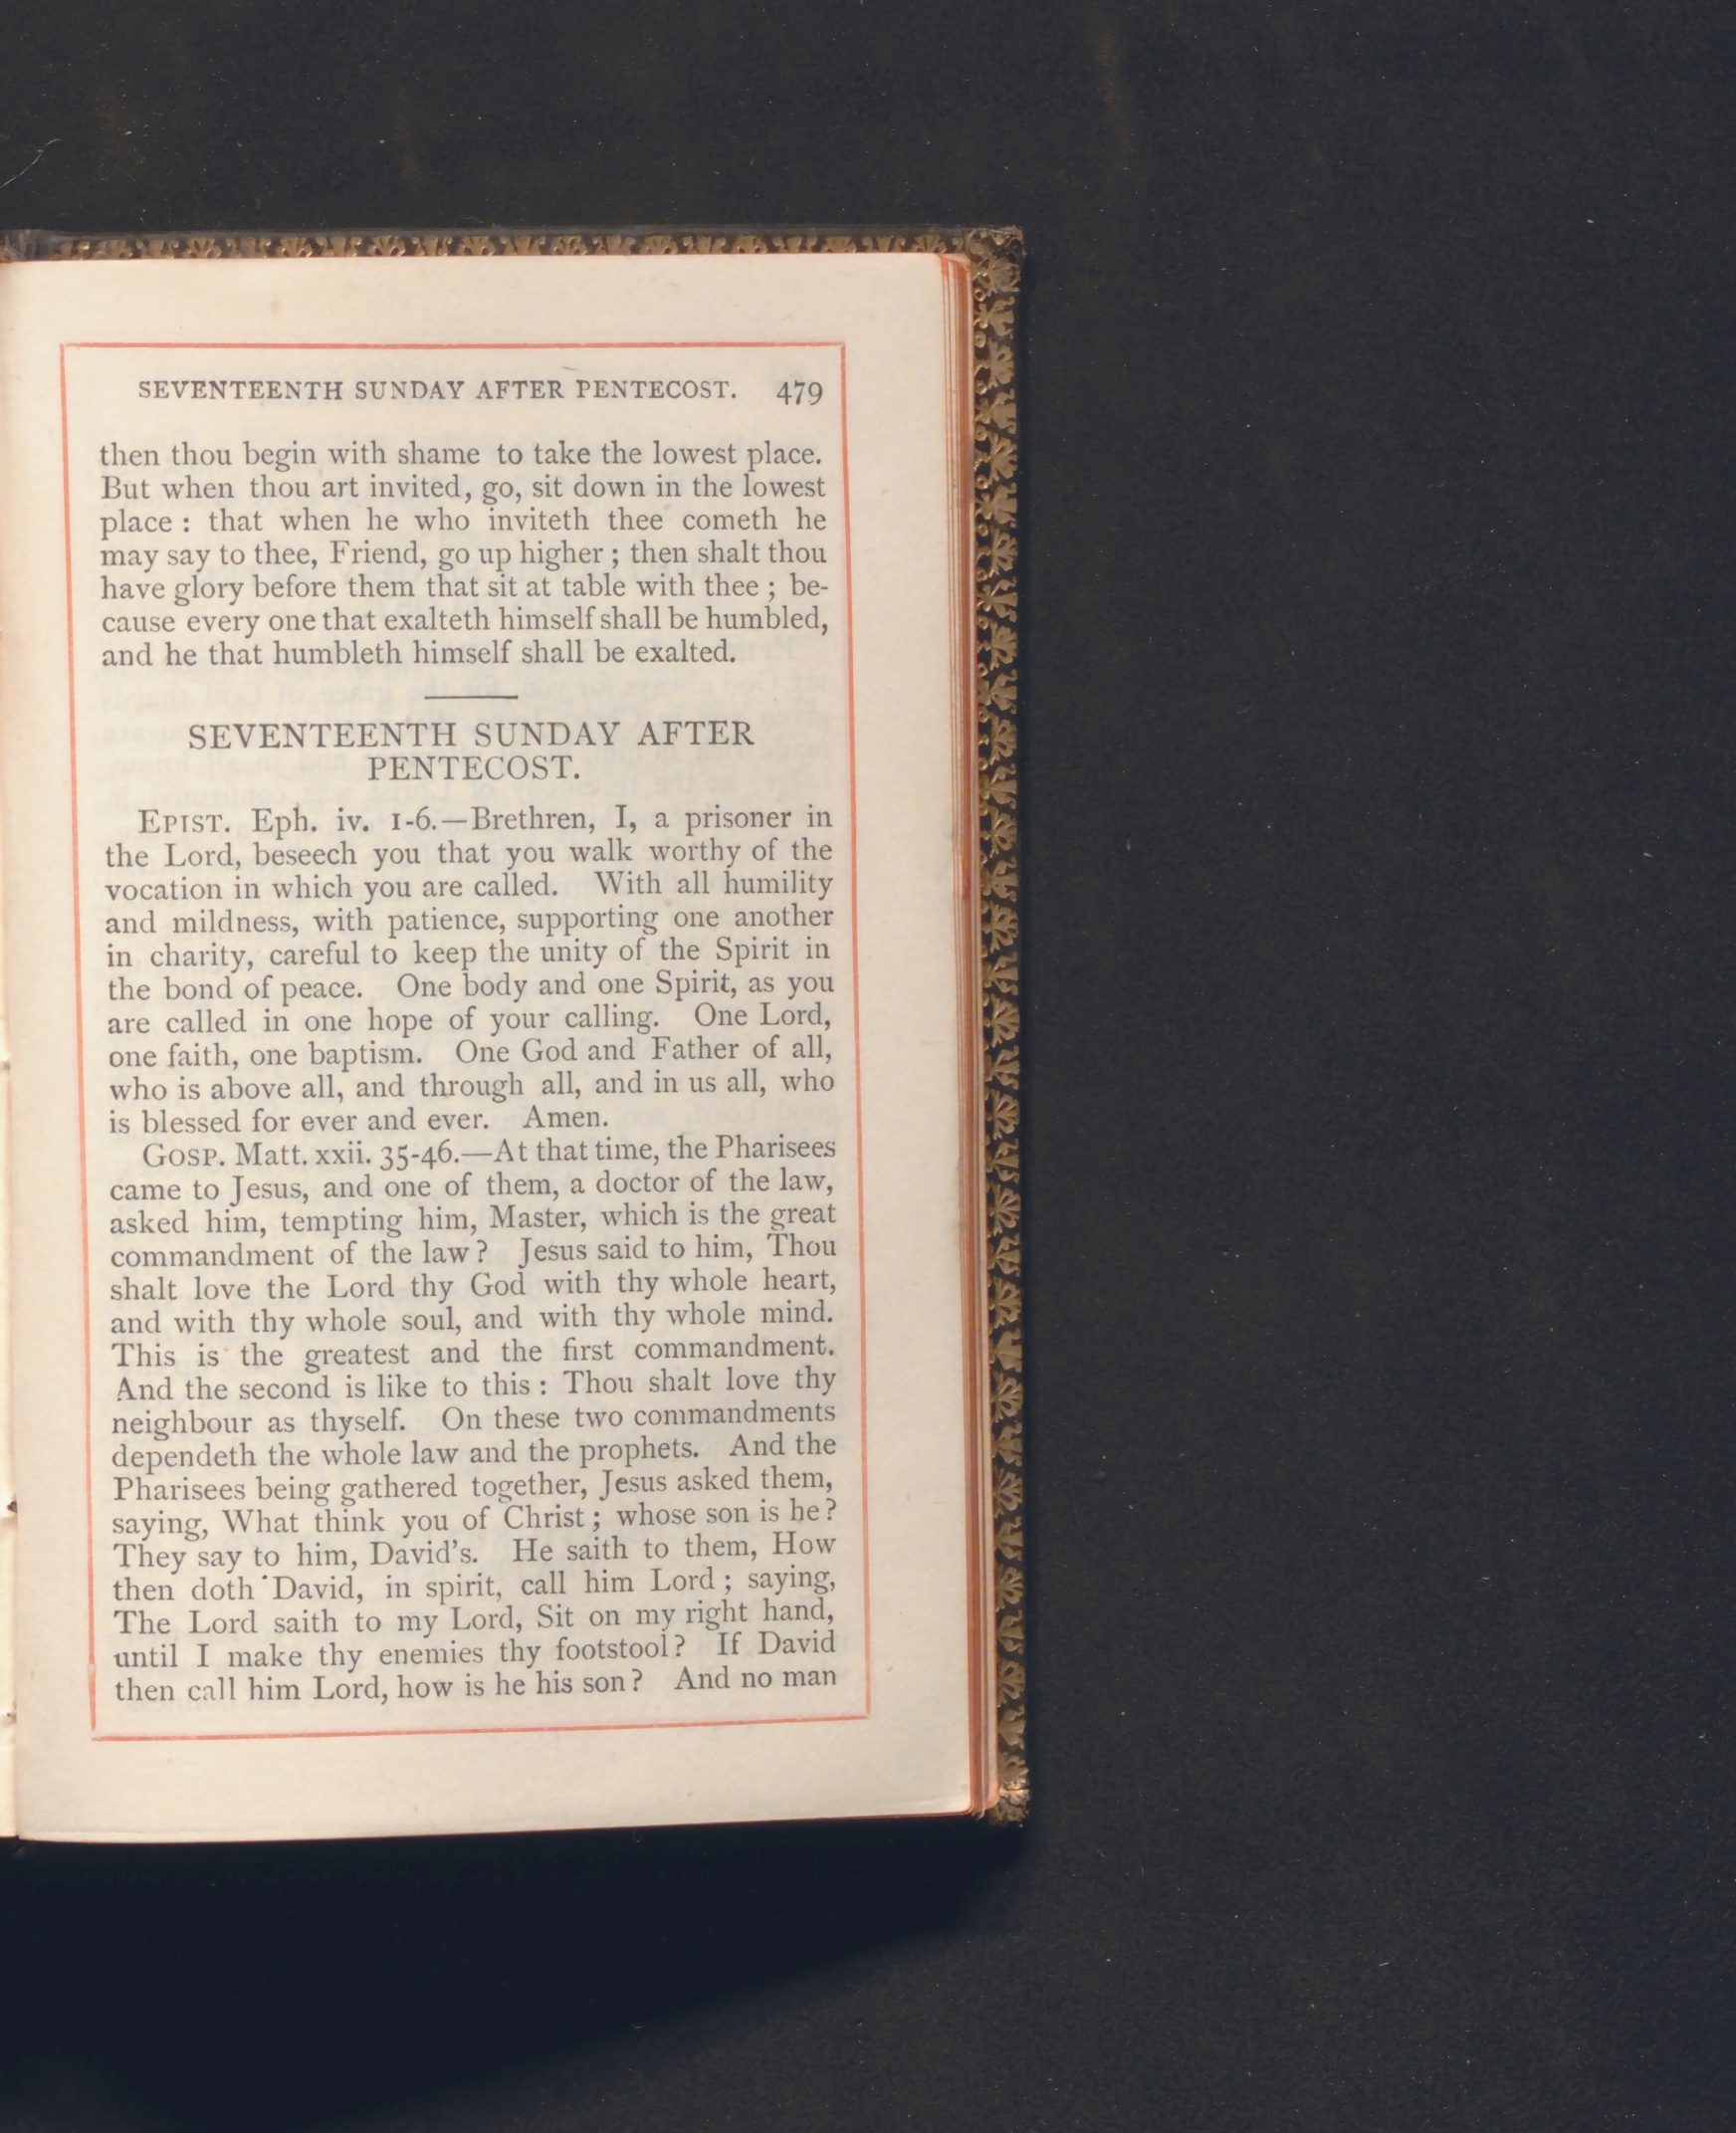 SEVENTEENTH SUNDAY AFTER PENTECOST. 479
then thou begin with shame to take the lowest place.
But when thou art invited, go, sit down in the lowest
place : that when he who inviteth thee cometh he
may say to thee, Friend, go up higher ; then shalt thou
have glory before them that sit at table with thee ; be-
cause every one that exalteth himself shall be humbled,
and he that humbleth himself shall be exalted.
SEVENTEENTH SUNDAY AFTER
PENTECOST.
EPIST. Eph. iv. 1-6.—Brethren, I, a prisoner in
the Lord, beseech you that you walk worthy of the
vocation in which you are called. With all humility
and mildness, with patience, supporting one another
in charity, careful to keep the unity of the Spirit in
the bond of peace. One body and one Spirit, as you
are called in one hope of your calling. One Lord,
one faith, one baptism. One God and Father of all,
who is above all, and through all, and in us all, who
is blessed for ever and ever. Amen.
GOSP. Matt. xxii. 35-46.—At that time, the Pharisees
came to Jesus, and one of them, a doctor of the law,
asked him, tempting him, Master, which is the great
commandment of the law? Jesus said to him, Thou
shalt love the Lord thy God with thy whole heart,
and with thy whole soul, and with thy whole mind.
This is the greatest and the first commandment.
And the second is like to this : Thou shalt love thy
neighbour as thyself. On these two commandments
dependeth the whole law and the prophets. And the
Pharisees being gathered together, Jesus asked them,
saying, What think you of Christ ; whose son is he?
They say to him, David's. He saith to them, How
then doth David, in spirit, call him Lord ; saying,
The Lord saith to my Lord, Sit on my right hand,
until I make thy enemies thy footstool? If David
then call him Lord, how is he his son? And no man